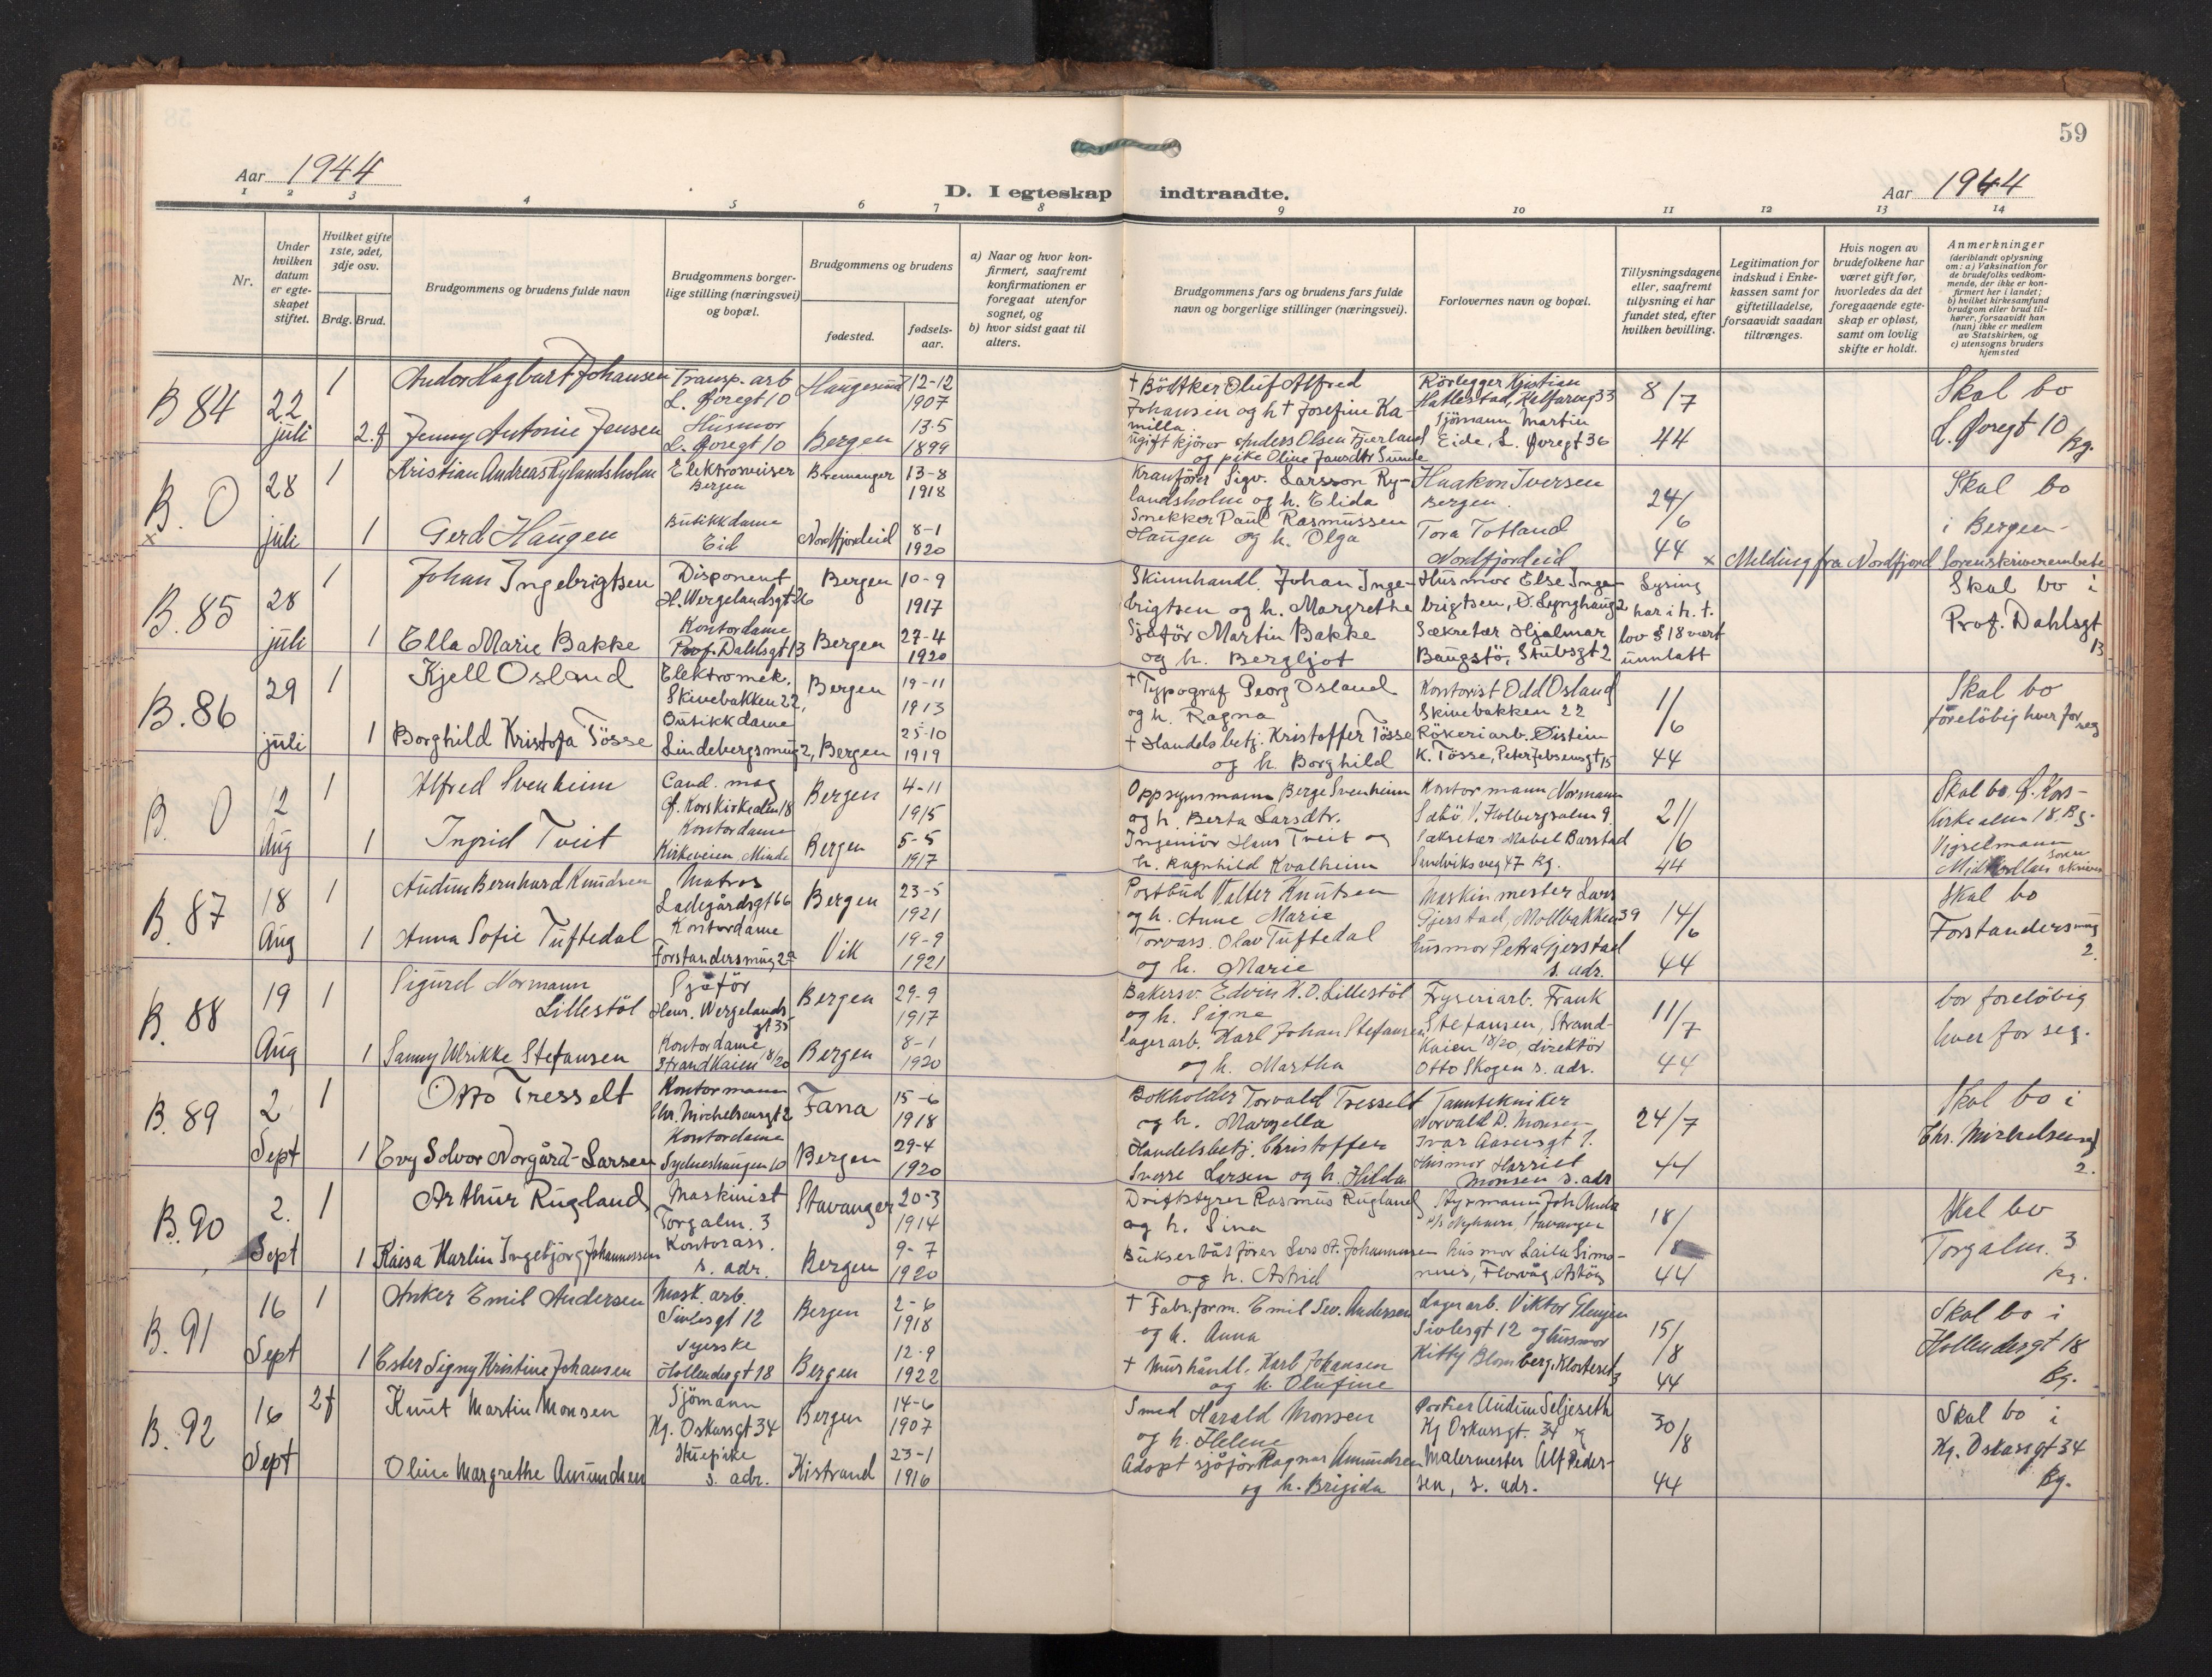 59
Aar 1944
D. I egteskap indtraadte.
Aar 1944
1 2 3 4 5 6 7 8 9 10 11 12 13 14
Nr.
Under hvilken datum er egteskapet stiftet.
Hvilket gifte 1ste, 2det, 3dje osv.
Brdg. Brud.
Brudgommens og brudens fulde navn
Brudgommens borgerlige stilling (næringsvei) og bopæl.
Brudgommens og brudens
fødested.
fødselsaar.
a) Naar og hvor konfirmert, saafremt konfirmationen er foregaat utenfor sognet, og
b) hvor sidst gaat til alters.
Brudgommens fars og brudens fars fulde navn og borgerlige stillinger (næringsvei).
Forlovernes navn og bopæl.
Tillysningsdagene eller, saafremt tillysning ei har fundet sted, efter hvilken bevilling.
Legitimation for indskud i Enkekassen samt for giftetilladelse, forsaavidt saadan tiltrænges.
Hvis nogen av brudefolkene har været gift før, hvorledes da det foregaaende egteskap er opløst, samt om lovlig skifte er holdt.
Anmerkninger
(deriblandt oplysning om: a) Vaksination for de brudefolks vedkommende, der ikke er konfirmert her i landet;
b) hvilket kirkesamfund brudgom eller brud tilhører, forsaavidt han (hun) ikke er medlem av Statskirken, og
c) utensogns bruders hjemsted
B 84
22 juli
1
Andor Hagbart Johansen
Transp. arb
L. Øvregt 10
Haugesund
12-12
1907
2. g
Jenny Antonie Jensen
Husmor
L. Øvregt 10
Bergen
13-5
1899
† Bödtker Oluf Alfred
Johansen og h † Josefine Ka-
milla
ugift kjörer Anders Olsen Fjærland
og pike Oline Jansdtr Sunde
Rörlegger Kristian
Hatlestad, Kalfarvg 33
Sjömann Martin
Eide, L. Øvregt 36
8/7
44
Skal bo
L. Øvregt 10
Bg.
B. 0
x
28
juli
1
Kristian Andreas Rylandsholm
Elektrosveiser
Bergen
Bremanger
13-8
1918
1
Gerd Haugen
Butikkdame
Eid
Nordfjordeid
8-1
1920
Kranförer Sigv. Larsson Ry-
landsholm og h. Elida
Snekker Paul Rasmussen
Haugen og h. Olga
Haakon Iversen
Bergen
Tora Totland
Nordfjordeid
24/6
44
Skal bo
i Bergen-
x Melding fra Nordfjord Sorenskriverembete
B. 85
28
juli
1
Johan Ingebrigtsen
Disponent
H. Wergelandsgt 26
Bergen
10-9
1917
1
Ella Marie Bakke
Kontordame
Prof. Dahlsgt 13
Bergen
27-4
1920
Skinnhandl. Johan Inge-
brigtsen og h. Margrethe
Sjåför Martin Bakke
og h. Bergljot
Husmor Else Inge-
brigtsen, D. Lynghaug 2
Sekretær Hjalmar
Baugstö, Stubsgt 2
Lysing
har i h. t.
lov § 18 vært
unnlatt
Skal bo i
Prof. Dahlsgt
13
B. 86
29
juli
1
Kjell Osland
Elektromek.
Skivebakken 22,
Bergen
19-11
1913
1
Borghild Kristofa Tösse
Butikkdame
Lindebergsmug 2,
Bergen
25-10
1919
† Typograf Georg Osland
og h. Ragna
† Handelsbetj. Kristoffer Tösse
og h. Borghild
Kontorist Odd Osland
Skivebakken 22
Rökeriarb. Øistein
K. Tösse, Peter Jebsensgt 15
1/6
44
Skal bo
foreløbig hver for
seg
B. 0
12
Aug
1
Alfred Svenheim
Cand. mag
Ø. Korskirkealm 18
Bergen
4-11
1915
1
Ingrid Tveit
Kontordame
Kirkeveien, Minde
Bergen
5-5
1917
Oppsynsmann Berge Svenheim
og h. Berta Larsdtr.
Ingeniör Hans Tveit og
h. Ragnhild Kvalheim
Kontormann Normann
Sæbö, V. Holbergsalm 9.
Sekretær Mabel Barstad
Sandviksveg 47 Bg.
21/6
44
Skal bo Ø. Kors-
kirkealm 18, Bg.
Vigselmann
B. 87
18
Aug
1
Audun Bernhard Knudsen
Matros
Ladegårdsgt 66
Bergen
23-5
1921
1
Anna Sofie Tuftedal
Kontordame
Forstandersmug 2a
Vik
19-9
1921
Postbud Valter Knutsen
og h. Anne Marie
Torvass. Olav Tuftedal
og h. Marie
Maskinmester Lars
Gjerstad, Mollbakken 39
Husmor Petra Gjerstad
s. adr.
14/6
44
Skal bo
Forstandersmug
2.
B. 88
19
Aug
1
Sigurd Normann
Lillestöl
Sjåför
Henr. Wergelands
gt 35
Bergen
29-9
1917
1
Sanny Ulrikke Stefansen
Kontordame
Strandkaien 18/20
Bergen
8-1
1920
Bakersv. Edvin K. O. Lillestöl
og h. Signe
Lagerarb. Karl Johan Stefansen
og h. Martha
Fryseriarb. Frank
Stefansen, Strand-
kaien 18/20, direktör
Otto Skogen s. adr.
11/7
44
bor foreløbig
hver for seg.
B. 89
2
Sept
1
Otto Tresselt
Kontormann
Chr. Michelsensgt 2
Fana
15-6
1918
1
Evy Solvor Norgård-Larsen
Kontordame
Sydneshaugen 10
Bergen
29-4
1920
Bokholder Torvald Tresselt
og h. Margella
Handelsbetj. Christoffer
Sverre Larsen og h. Hilda
Tanntekniker
Norvald D. Monsen
Ivar Aasensgt 7.
Husmor Harriet
Monsen s. adr
24/7
44
Skal bo i
Chr. Michelsensgt
2.
B. 90
2.
Sept
1
Arthur Rugland
Maskinist
Torgalm. 3
Stavanger
20-3
1914
1
Kaisa Karlin Ingebjorg Johannessen
Kontorass.
s. adr.
Bergen
9-7
1920
Driftstyrer Rasmus Rugland
og h. Sina
Bukserbåtförer Lars A. Johannessen
og h. Astrid
Styrmann
Stavanger
husmor Laila Simo-
nnes, Florvåg, Asköy
18/
44
Skal bo
Torgalm. 3
Bg.
B. 91
16
Sept
1
Anker Emil Andersen
Mask. arb.
Sivlesgt 12
Bergen
2-6
1918
1
Ester Signy Kristine Johansen
Syerske
Hollendergt 18
Bergen
12-9
1922
† Fabr.form. Emil Sev. Andersen
og h. Anna
† Murhåndl. Karl Johansen
og h. Olufine
Lagerarb. Viktor
Sivlesgt 12 og husmor
Kitty Blomberg, Klosteret
3
15/8
44
Skal bo i
Hollendergt 18
Bg.
B. 92
16
Sept
2 f
Knut Martin Monsen
Sjömann
Kg. Oskarsgt 34
Bergen
14-6
1907
Oline Margrethe Amundsen
Stuepike
s. adr.
Kistrand
23-1
1916
Smed Harald Monsen
og h. Helene
Adopt sjåfør Ragnar Amundsen
og h. Brigida
Portier Audun Seljeseth
Kg Oskarsgt. 34 og
Malermester Alf Peder-
sen, s. adr.
30/8
44
Skal bo i
Kg. Oskarsgt 34
Bg.